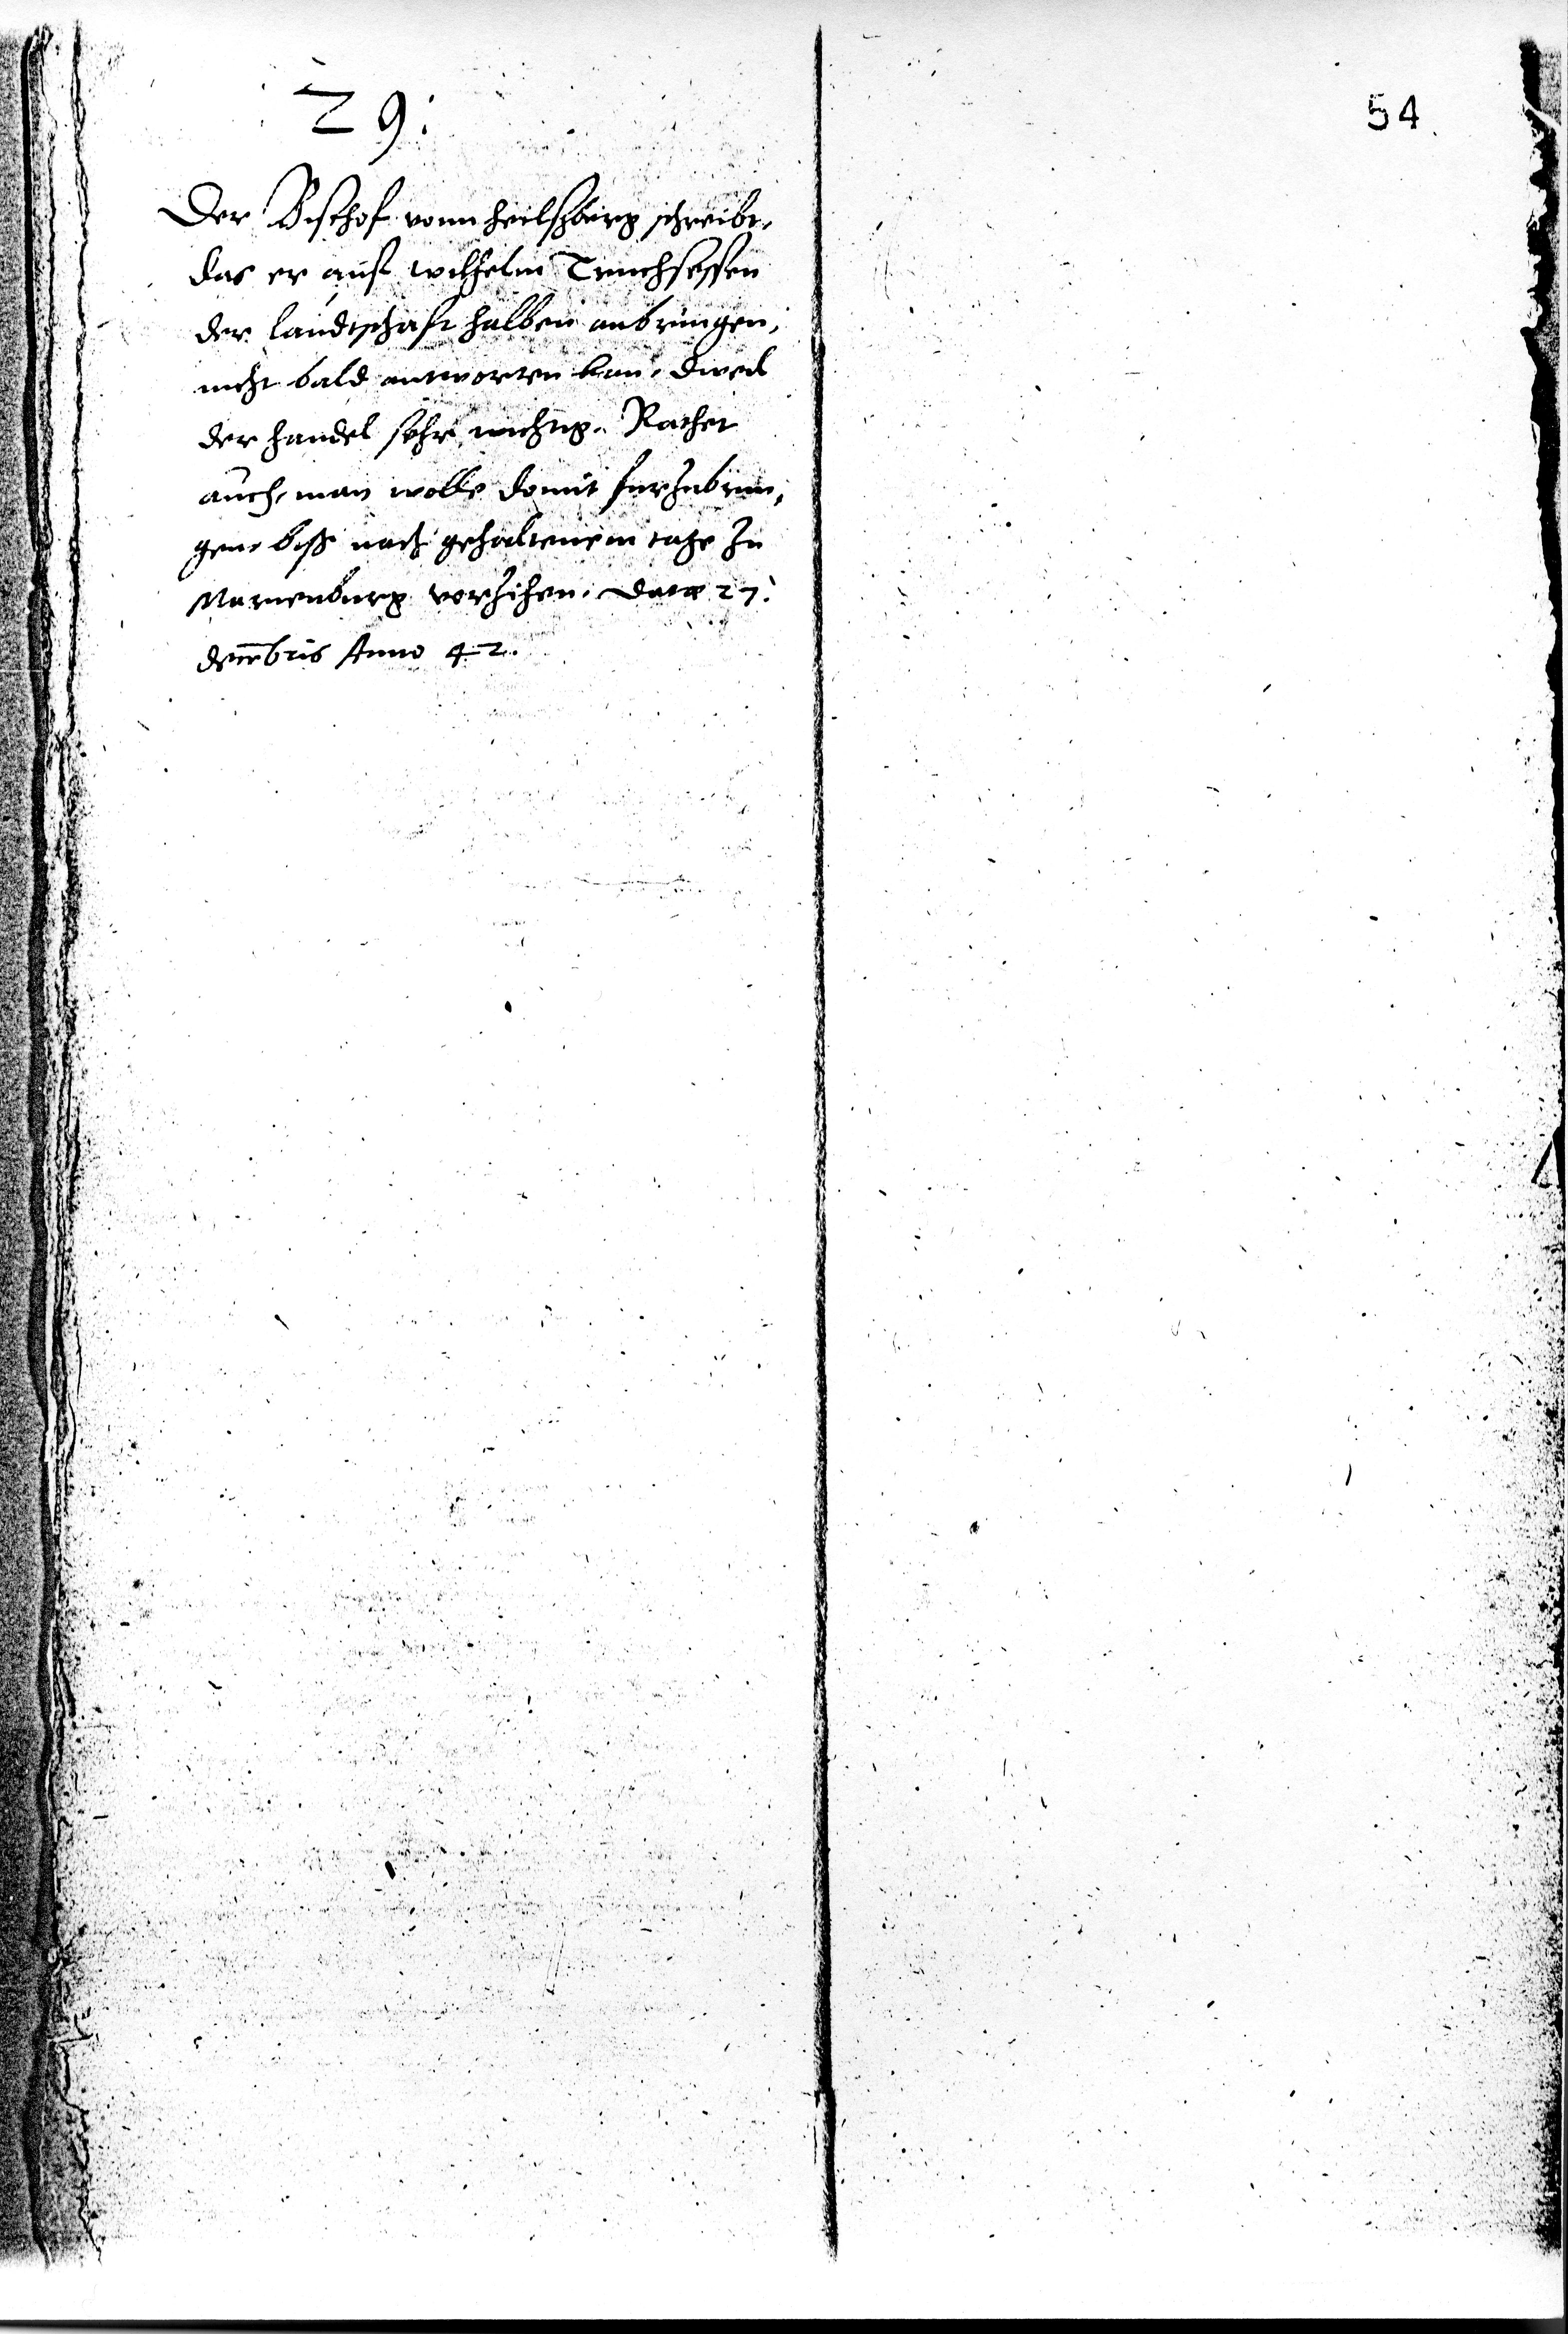 29:
54
Der Bischof vonn heilsperg schreibt,
das er auff wilhelm Truchsessen
der landtschafft halben anbringen,
nicht bald antworten kan, dweil
der handel sehr wichtig. Rathet
auch, man wolle domit furzubrin,
gen, biss nach gehaltenem tage zu
Marienburg vorzihen. Data 27.
decembris Anno 42.